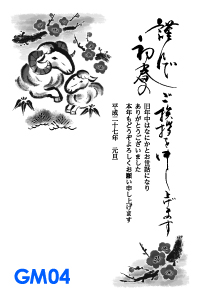 謹んで
初春の
ご挨拶を申し上げます
旧年中はなにかとお世話になり
ありがとうございました
本年もどうぞよろしくお願い申し上げます
平成二十七年 元旦
GM04